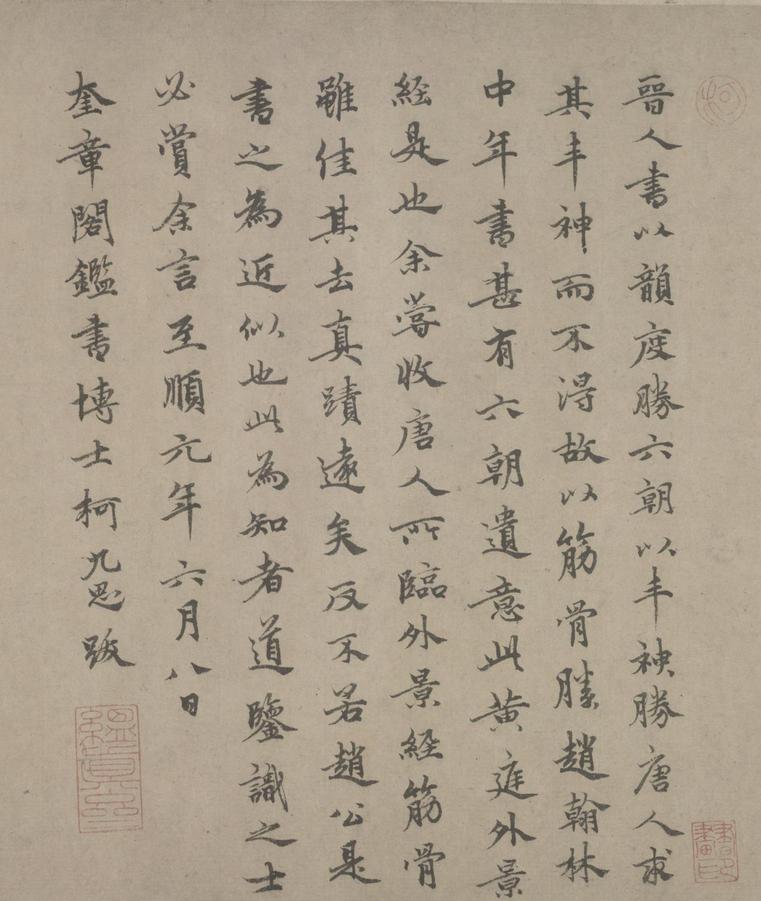 晉人書以韻度勝六朝以丰神勝唐人求
其丰神而不得故以筋骨勝趙翰林
中年書甚有六朝遺意此黄庭外景
經是也余嘗收唐人所臨外景經筋骨
雖佳其去真蹟遠矣反不若趙公是
書之為近似也此為知者道鑒識之士
必賞余言至順元年六月八日
奎章閣鑑書博士柯九思跋